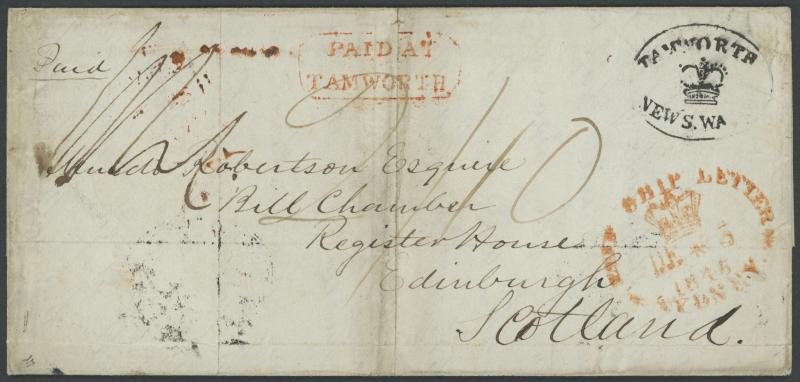 Paid
PAID AT
TAMWORTH
TAMWORTH
NEW S. WA
Robertson Esquire
Bill Chamber
Register House
Edinburgh
Scotland.
SHIP LETTER
DE 5
1845
SYDNEY